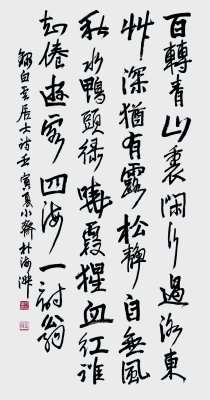 百轉青山裏閑行過洛東
草深猶有露松靜自無風
秋水鴨頭綠曉霞猩血紅誰
知倦遊客四海一詩翁
翱白雲居士詩壬寅夏小齋於海濱